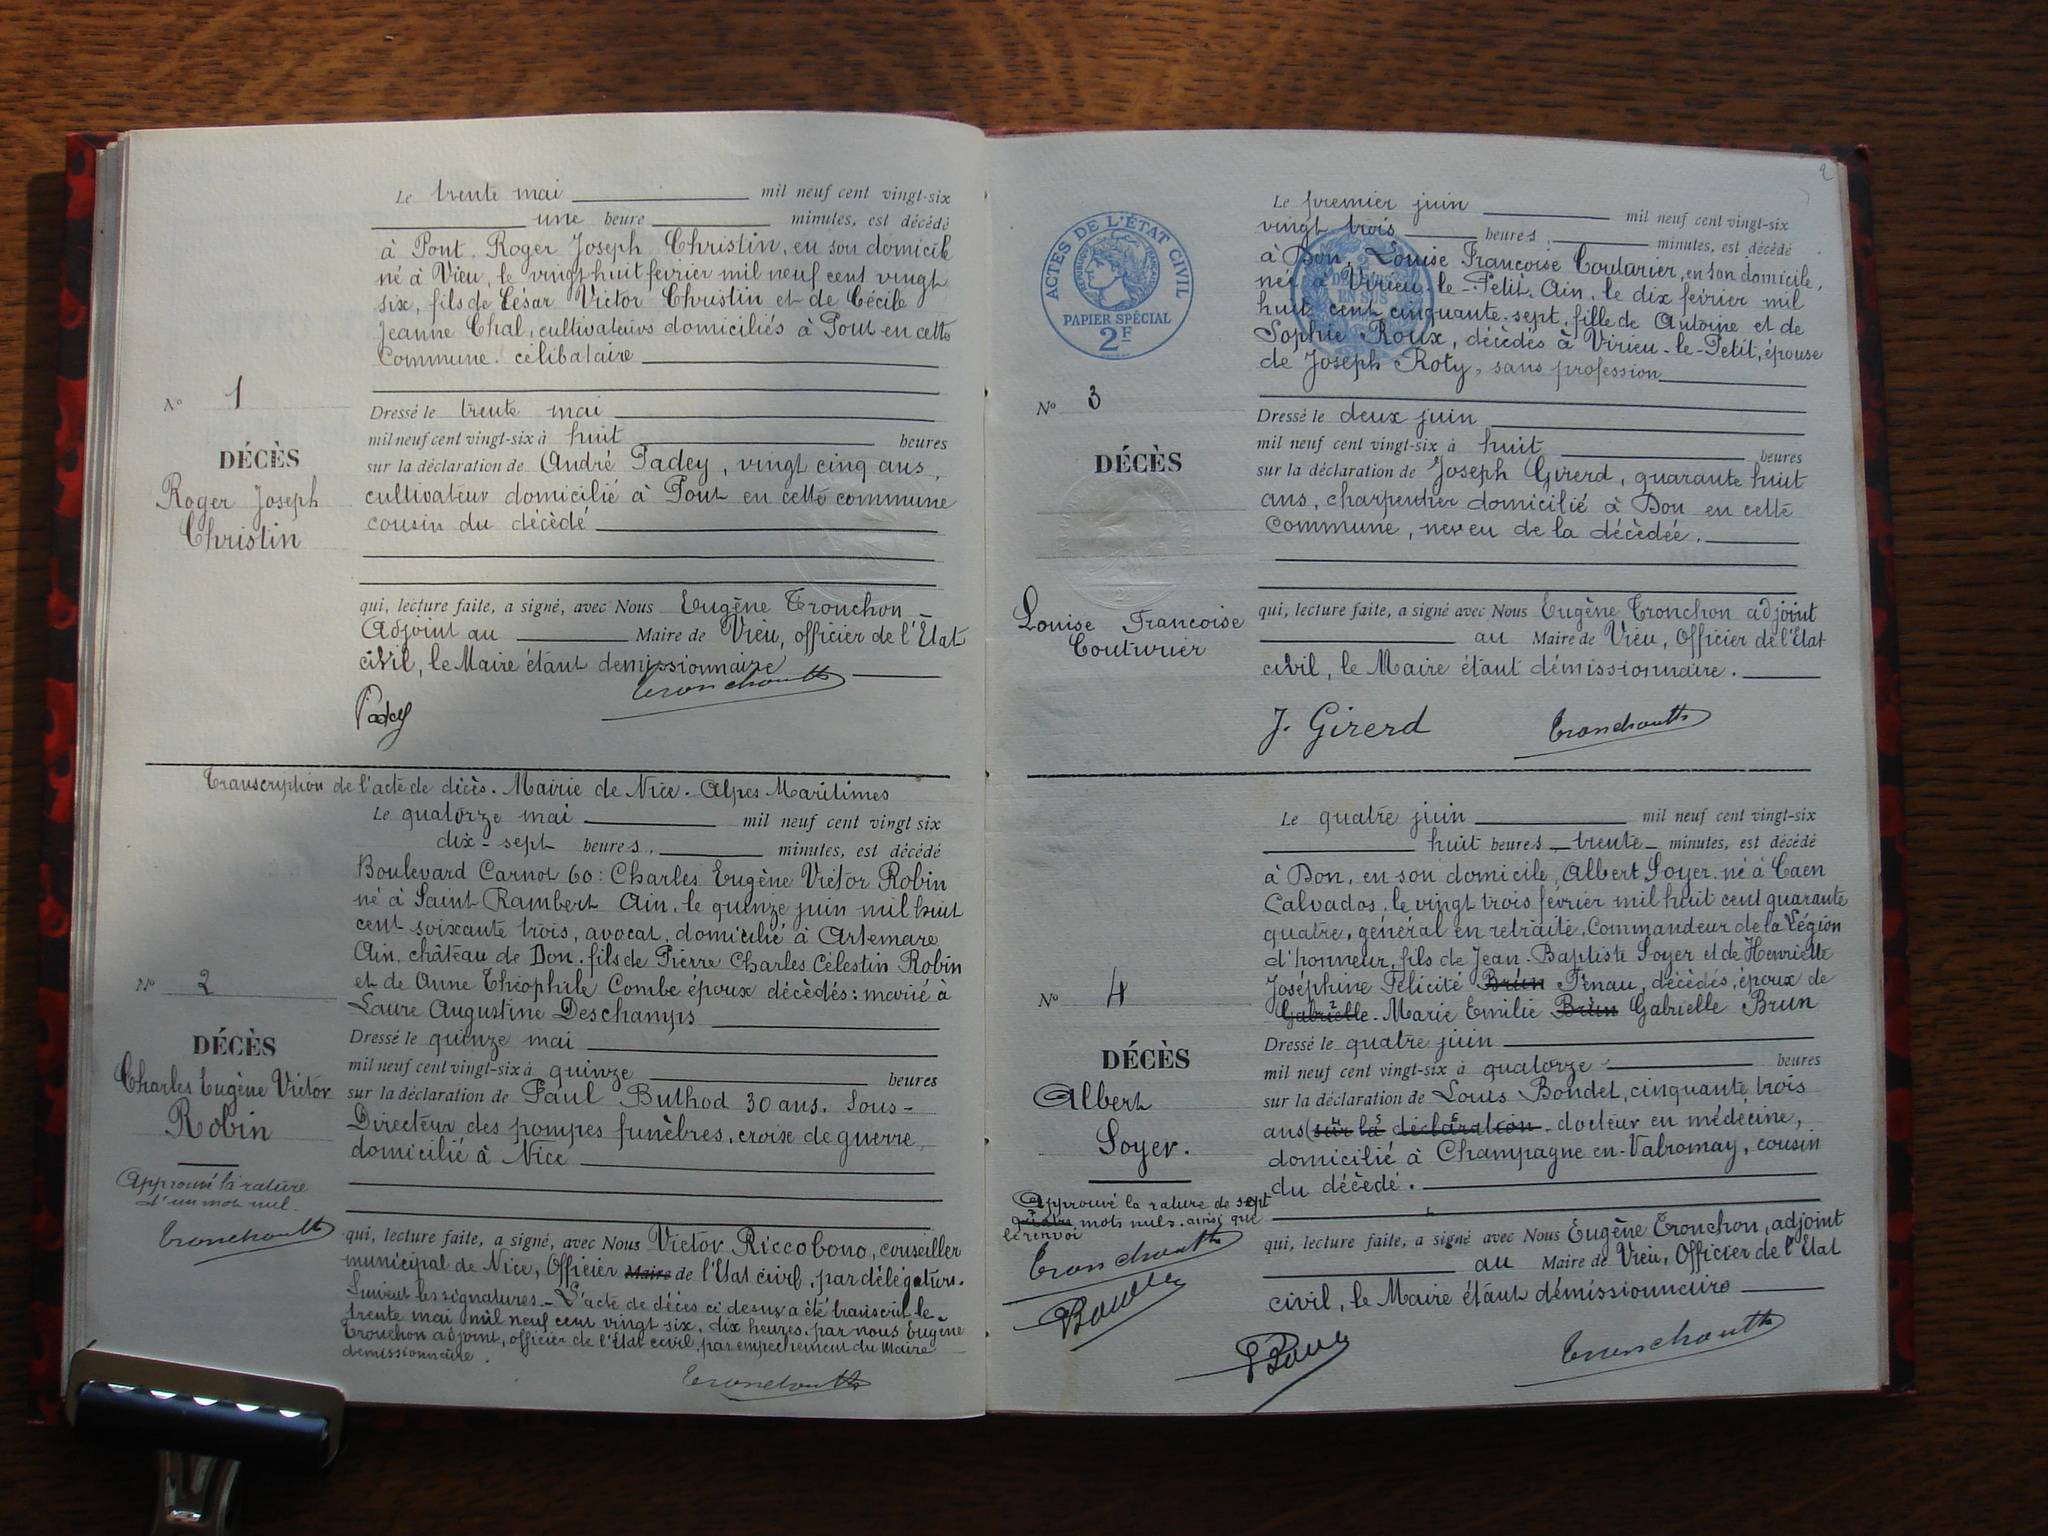 Le trente mai mil neuf cent vingt-six
une heure minutes, est décédé
à Pont, Roger Joseph Christin, en son domicile
né à Vieu, le vingt huit février mil neuf cent vingt
six, fils de César Victor Christin et de Cécile
Jeanne Chal, cultivateurs domiciliés à Pont en cette
Commune. célibataire
N° 1
DÉCÈS
Roger Joseph
Christin
Dressé le trente mai
mil neuf cent vingt-six à huit heures
sur la déclaration de André Padey, vingt cinq ans,
cultivateur domicilié à Pont en cette commune
cousin du décédé
qui, lecture faite, a signé, avec Nous Eugène Tronchon
Adjoint au Maire de Vieu, officier de l'Etat
civil, le Maire étant demissionnaire
Padey
Transcription de l'acte de décès. Mairie de Nice. Alpes Maritimes
Le quatorze mai mil neuf cent vingt six
dix-sept heures, minutes, est décédé
Boulevard Carnot 60: Charles Eugène Victor Robin
né à Saint Rambert Ain, le quinze juin mil huit
cent soixante trois, avocat, domicilié à Artemare
Ain, château de Don, fils de Pierre Charles Célestin Robin
et de Anne Théophile Combe époux décédés: marié à
Laure Augustine Deschamps
N° 2
DÉCÈS
Charles Eugène Victor
Robin
Approuvé la rature
d'un mot nul.
Dressé le quinze mai
mil neuf cent vingt-six à quinze heures
sur la déclaration de Paul Buthod 30 ans, Sous-
Directeur des pompes funèbres, croix de guerre,
domicilié à Nice
qui, lecture faite, a signé, avec Nous Victor Riccobono, conseiller
municipal de Nice, Officier Maire de l'Etat civil, par délégation.
Suivent les signatures. L'acte de décès ci dessus a été transcrit le
trente mai mil neuf cent vingt six, dix heures, par nous Eugène
Tronchon adjoint, officier de l'Etat civil, par empechement du Maire
démissionnaire.
2
ACTES DE L'ÉTAT CIVIL
PAPIER SPÉCIAL
2F
EN SUS
Le premier juin mil neuf cent vingt-six
vingt trois heures, minutes, est décédé
à Don, Louise Françoise Couturier, en son domicile,
née à Virieu-le-Petit, Ain, le dix février mil
huit cent cinquante-sept, fille de Antoine et de
Sophie Roux, décédés à Virieu-le-Petit, épouse
de Joseph Roty, sans profession
N° 3
DÉCÈS
Louise Françoise
Couturier
Dressé le deux juin
mil neuf cent vingt-six à huit heures
sur la déclaration de Joseph Girerd, quarante huit
ans, charpentier domicilié à Don en cette
Commune, neveu de la décédée.
qui, lecture faite, a signé avec Nous Eugène Tronchon adjoint
au Maire de Vieu, Officier de l'Etat
civil, le Maire étant démissionnaire.
J. Girerd
Le quatre juin mil neuf cent vingt-six
huit heures trente minutes, est décédé
à Don, en son domicile, Albert Soyer, né à Caen
Calvados, le vingt trois février mil huit cent quarante
quatre, général en retraite, Commandeur de la Légion
d'honneur, fils de Jean-Baptiste Soyer et de Henriette
Joséphine Félicité Brun Penau, décédés, époux de
Gabrielle. Marie Emilie Brun Gabrielle Brun
N° 4
DÉCÈS
Albert
Soyer.
Approuvé la rature de sept
mots nuls. ainsi que
le renvoi
Dressé le quatre juin
mil neuf cent vingt-six à quatorze heures
sur la déclaration de Louis Bondet, cinquante trois
ans (sur la déclaration. docteur en médecine,
domicilié à Champagne en-Valromay, cousin
du décédé.
qui, lecture faite, a signé avec Nous Eugène Tronchon, adjoint
au Maire de Vieu, Officier de l'Etat
civil, le Maire étant démissionnaire